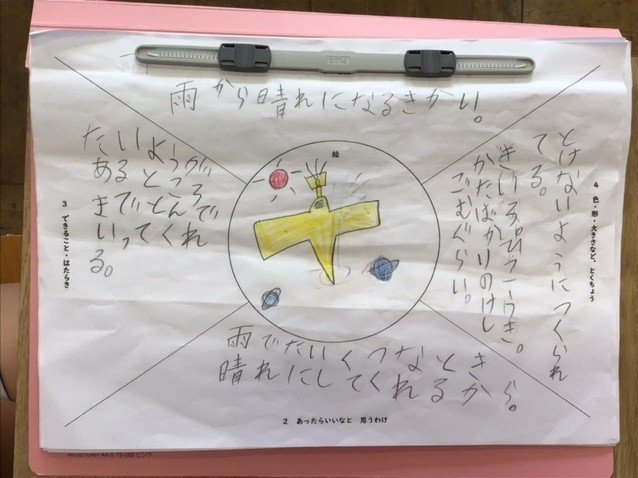 雨から晴れになるきかい。
絵
たいようが
あるところ
まで とんで
いってくれ
る。
3 できること・はたらき
4 色・形・大きさなど、とくちょう
とけないようにつくられ
てる。
きいろ。ひこうき。
かたばかりのけし
ごむぐらい。
雨でたいくつなとき
晴れにしてくれるから。
2 あったらいいなと 思うわけ
ピンク